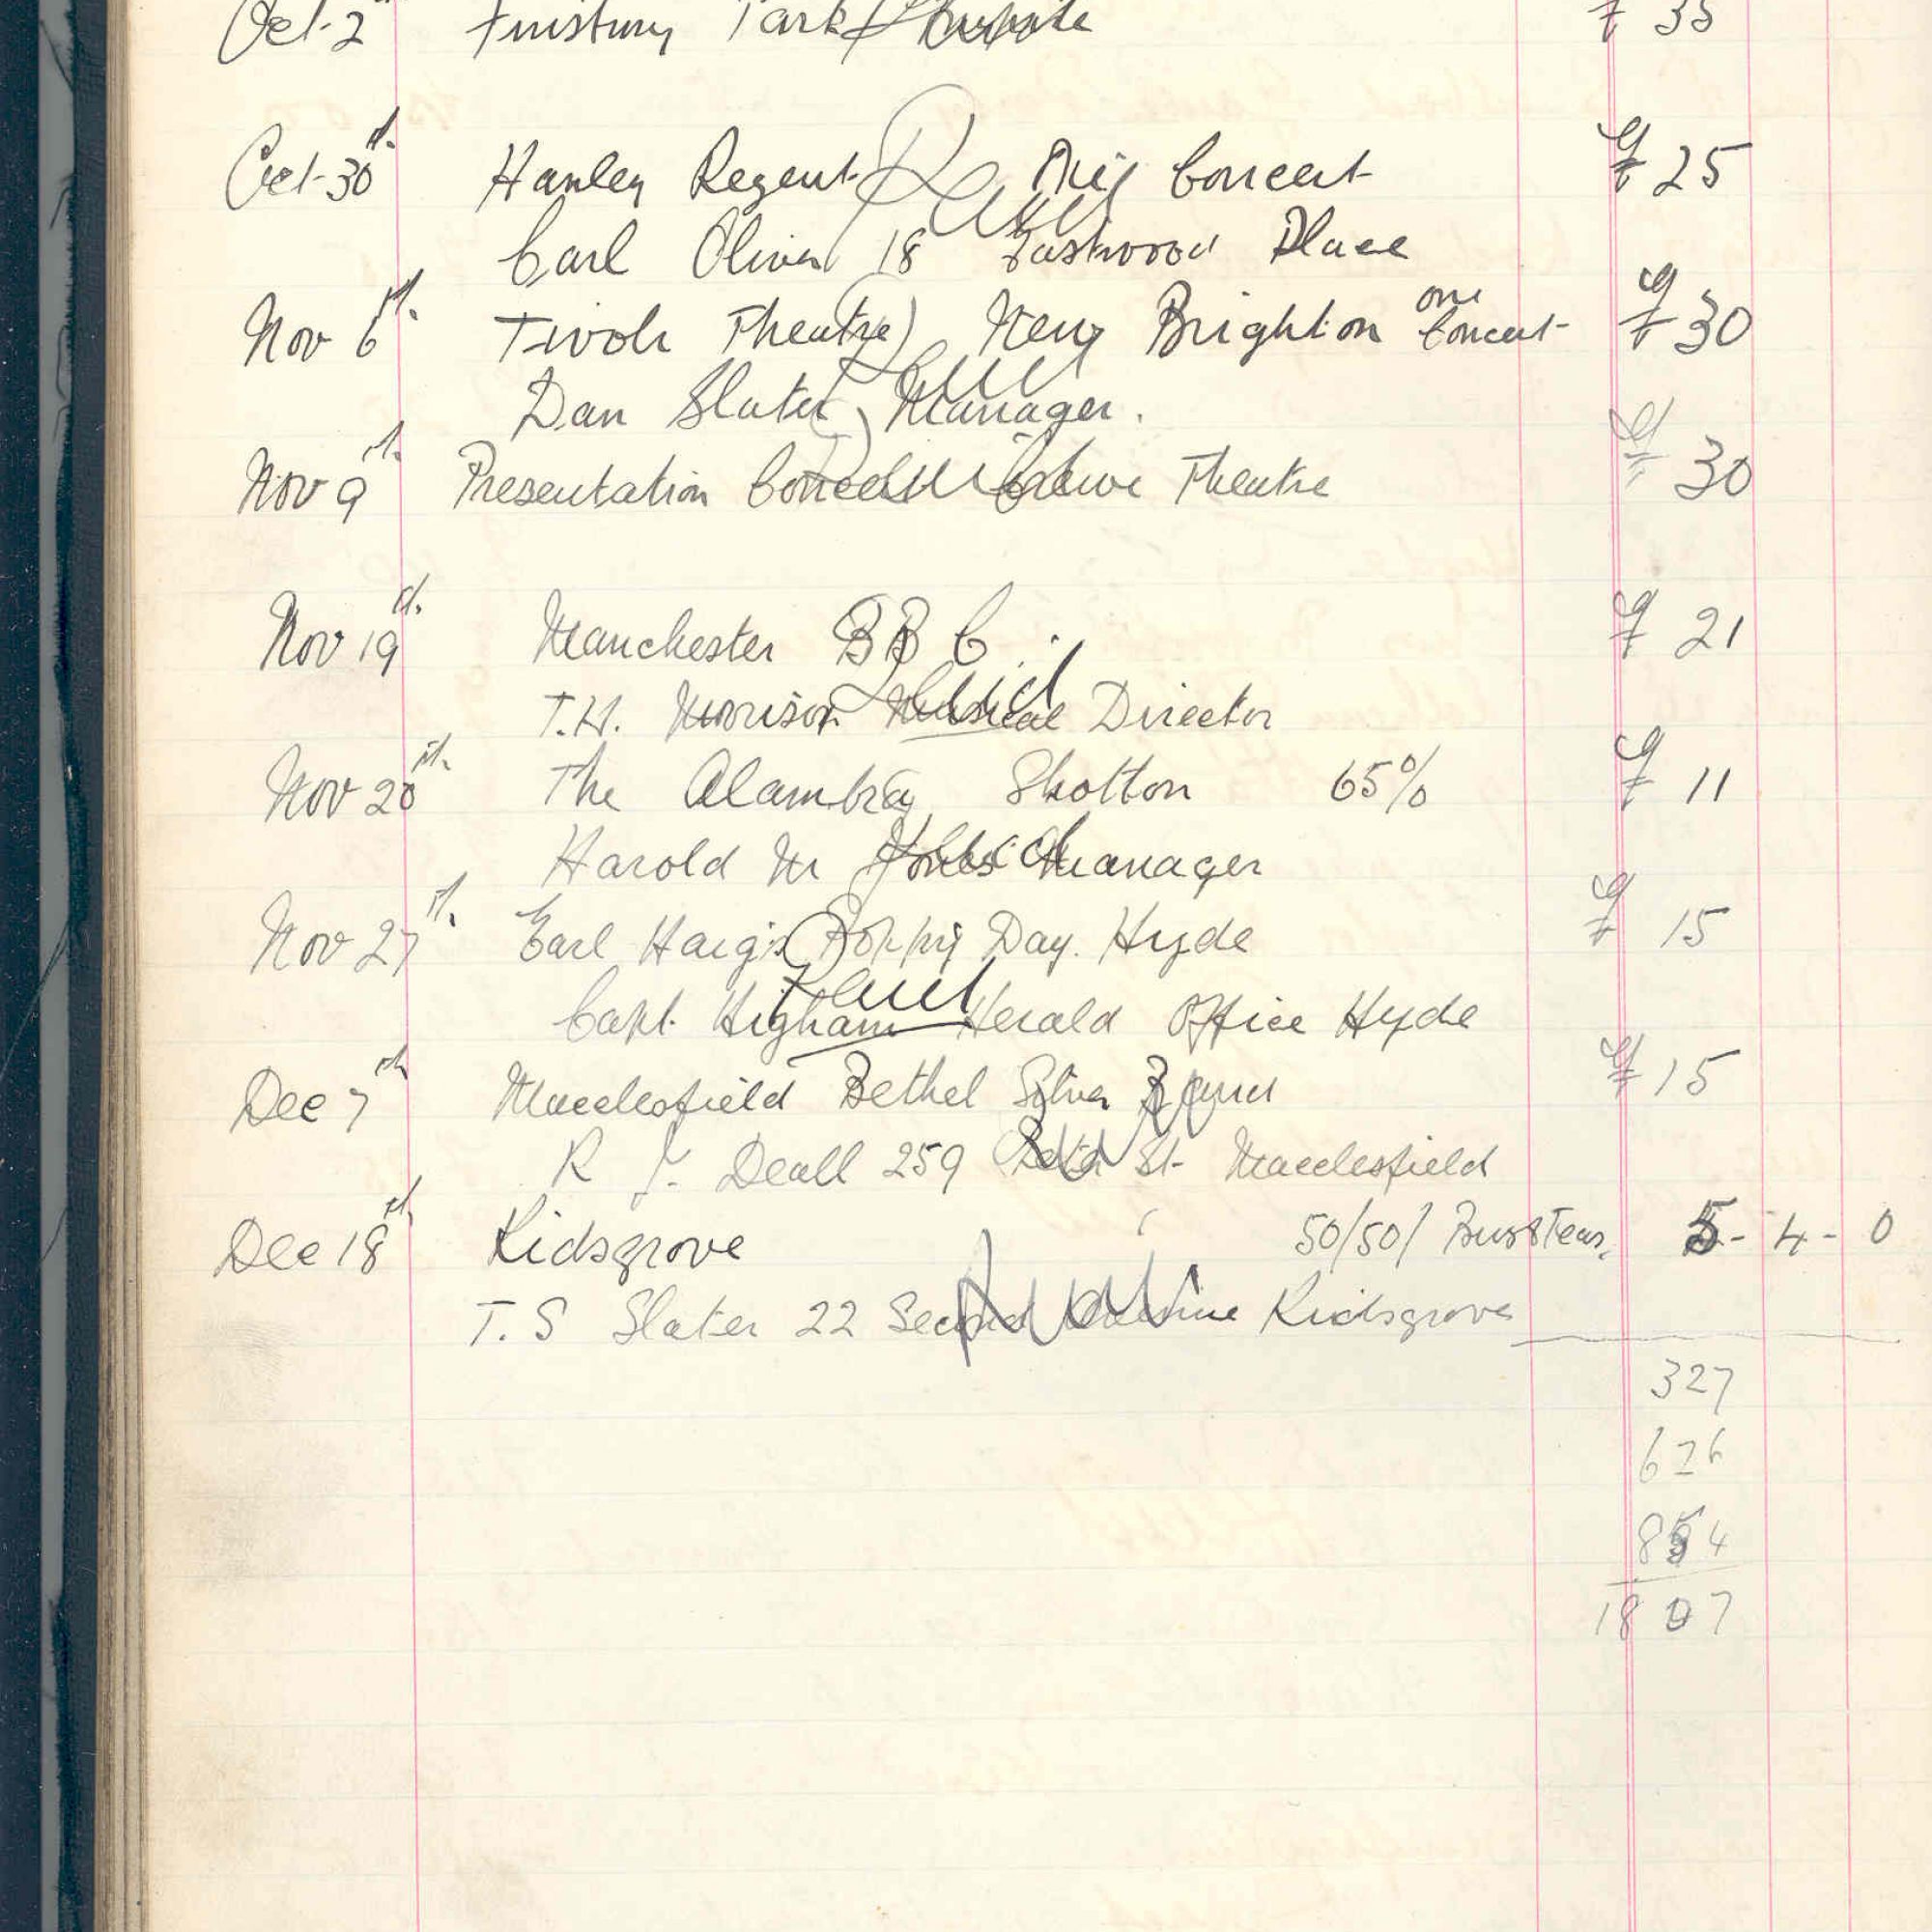 Oct 2 Finsbury Park Empire £ 35
Oct 30th Hanley Regent One Concert £ 25
Paid
Carl Oliver 18 Eastwood Place
Nov 6th Tivoli Theatre New Brighton one Concert £ 30
Paid
Dan Slater Manager.
Nov 9th Presentation Concert Crewe Theatre £ 30
Paid
Nov 19th Manchester BBC. £ 21
Paid
T.H. Morrison Musical Director
Nov 20th The Alambra Shotton 65% £ 11
Paid
Harold M Jones Manager
Nov 27th Earl Haig's Poppy Day. Hyde £ 15
Paid
Capt. Higham Herald Office Hyde
Dec 7th Macclesfield Bethel Silver Band £ 15
Paid
R J. Deall 259 St Macclesfield
Dec 18th Kidsgrove 50/50/ Bus & Teas. 5 - 4 - 0
Paid
T. S Slater 22 Second Avenue Kidsgrove
327
626
854
1807